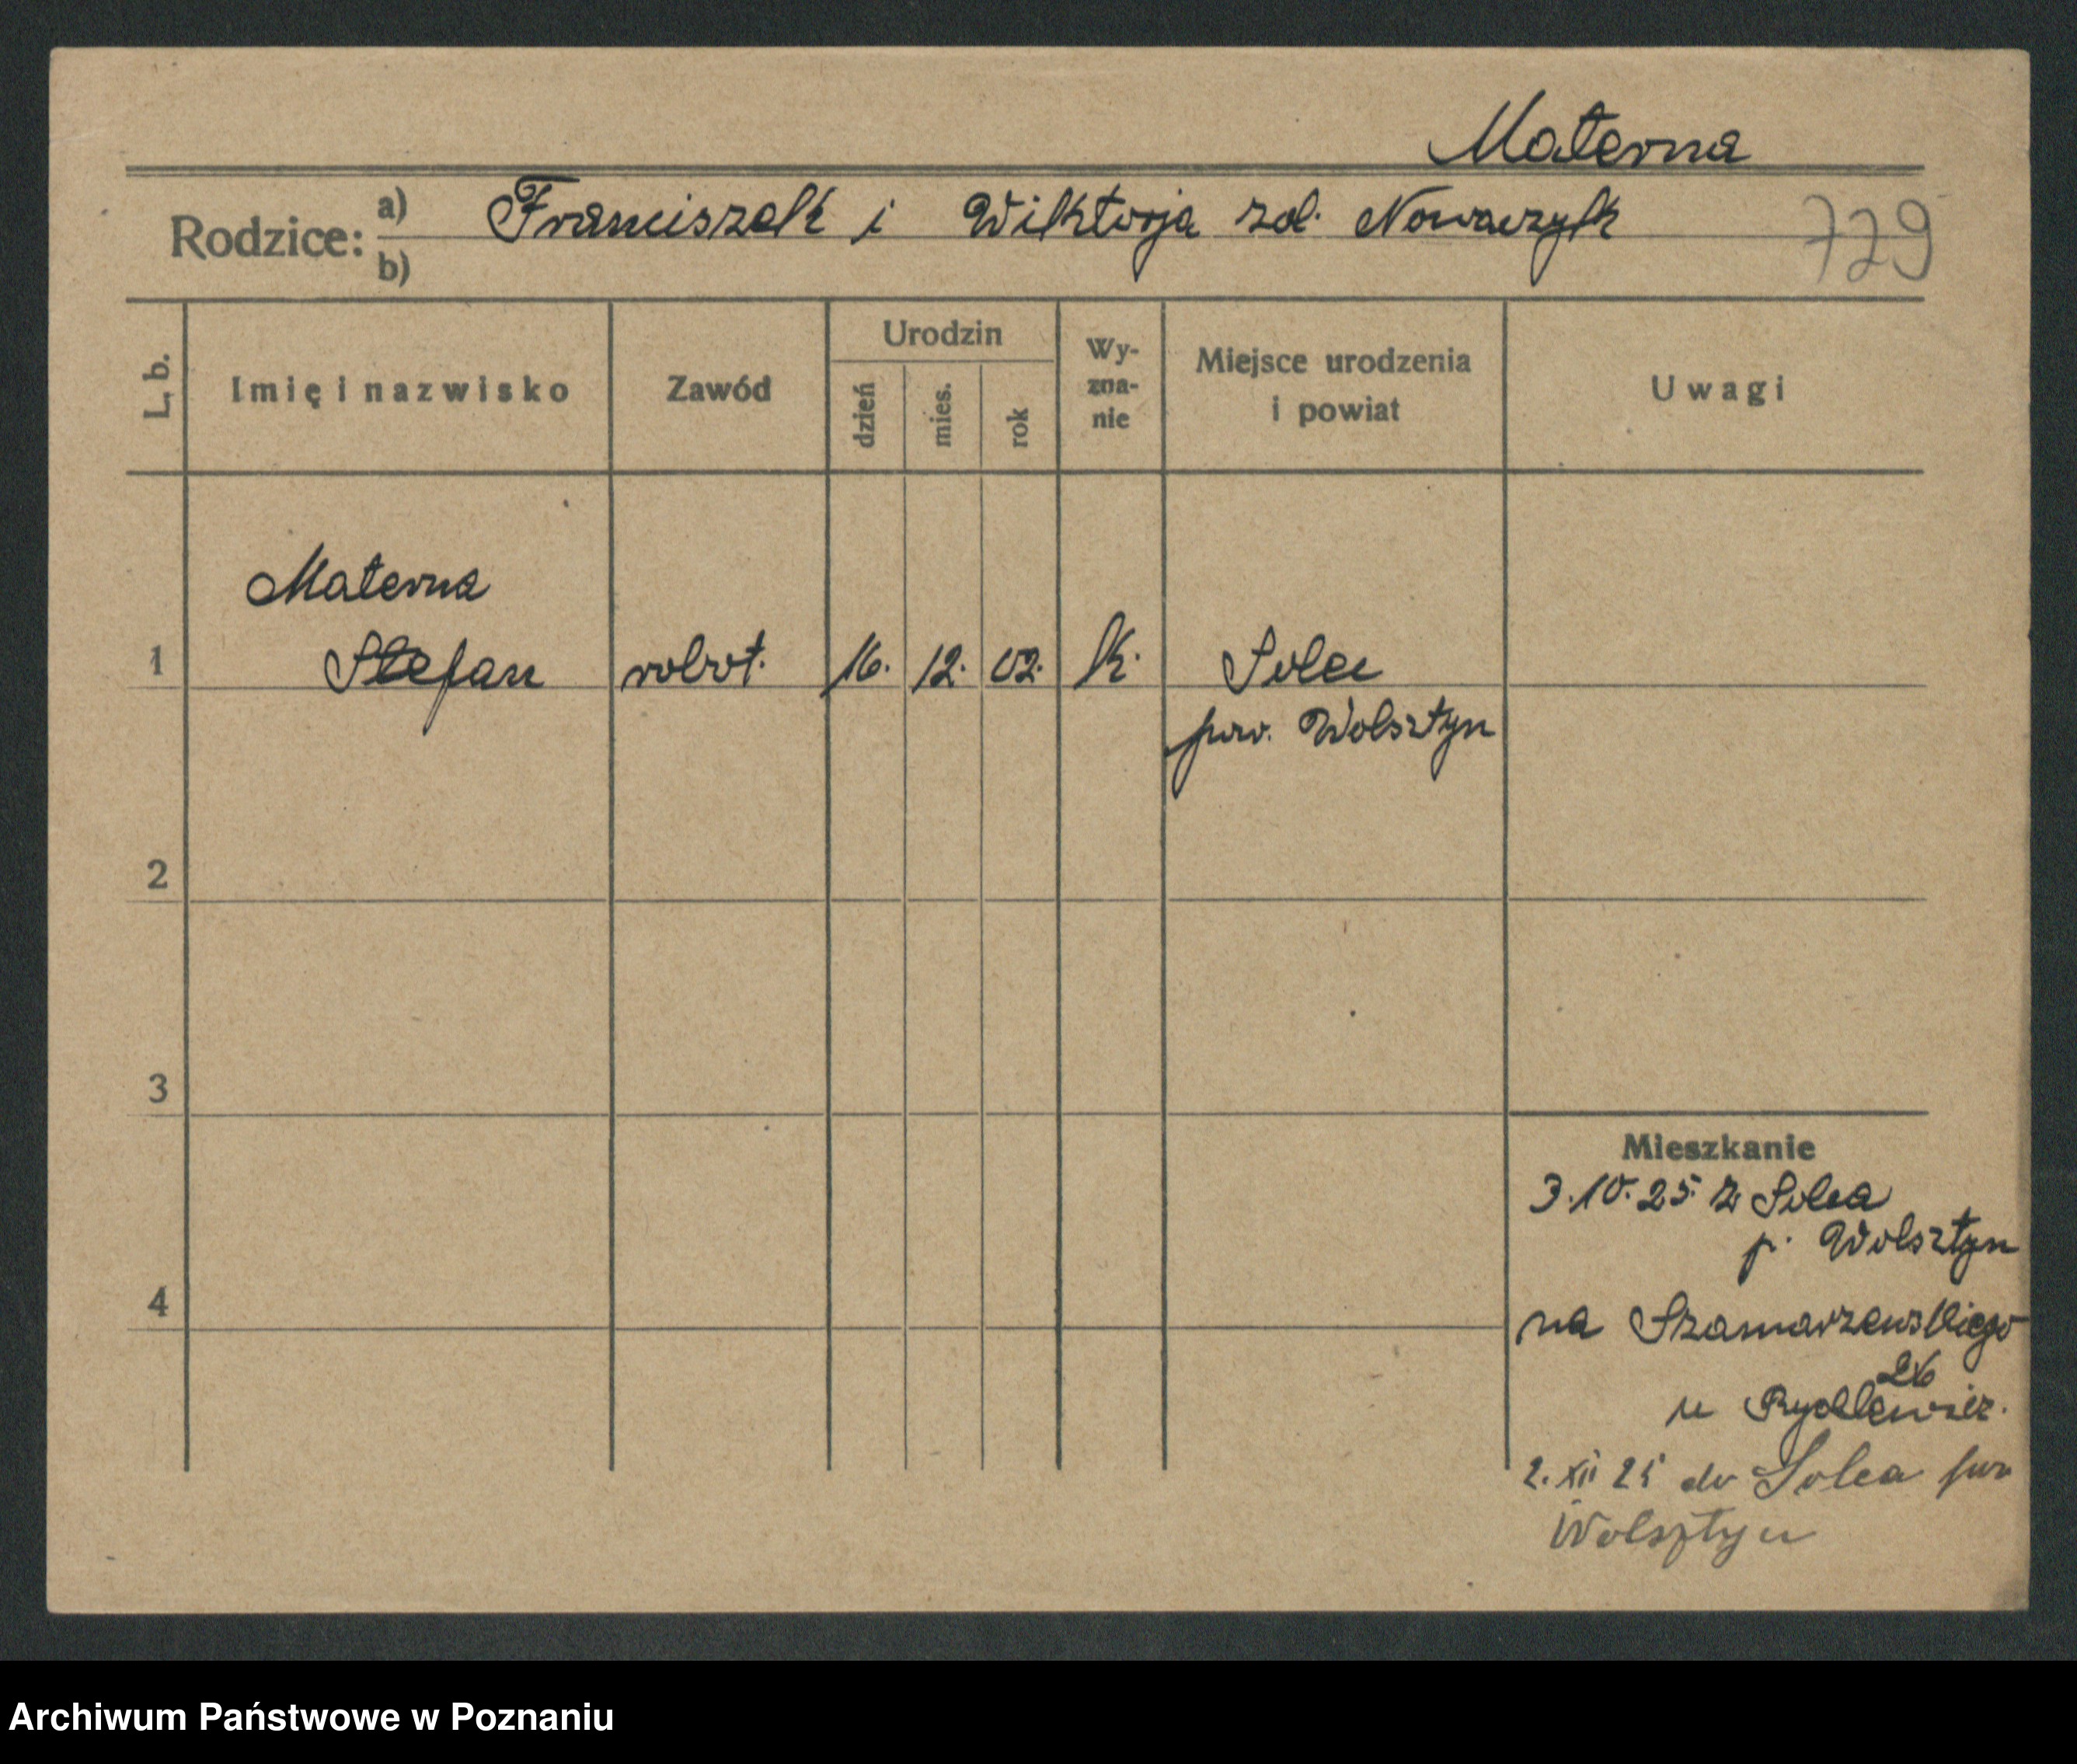 Materna
Rodzice: a) Franciszek i Wiktorja zol. Nowaczyk
b)
729
L. b.
Imię i nazwisko
Zawód
Urodzin
dzień
mies.
rok
Wy-
zna-
nie
Miejsce urodzenia
i powiat
Uwagi
Materna
1 Stefan robot. 16. 12. 02. k. Solec
pow. Wolsztyn
2
3
Mieszkanie
3.10.25. z Solca
p. Wolsztyn
4
na Szamarzewskiego
26
u Rydlewicz.
2. XII 25 do Solca pow
Wolsztyn
Archiwum Państwowe w Poznaniu